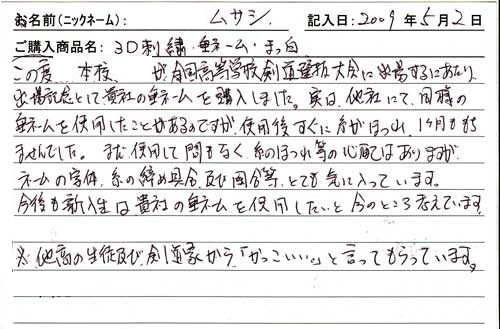 お名前(ニックネーム): ムサシ 記入日:2009年5月2日
ご購入商品名: 3D刺繍・垂ネーム・まっ白
この度、本校 が全国高等学校剣道選抜大会に出場するにあたり、
出場記念として貴社の垂ネームを購入しました。実は、他社にて、同様の
垂ネームを使用したことがあるのですが、使用後すぐに糸がほつれ、1ヶ月ももち
ませんでした。まだ使用して間もなく、糸のほつれ等の心配はありますが、
ネームの字体、糸の締め具合、及び 等、とても気に入っています。
今後も新入生は貴社の垂ネームを使用したいと今のところ考えています。
※他高の生徒及び剣道家から「かっこいい。」と言ってもらっています。